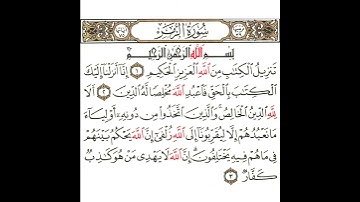 سُورَةُ الزُّمَرِ
بِسْمِ اللَّهِ الرَّحْمَٰنِ الرَّحِيمِ
تَنزِيلُ الْكِتَابِ مِنَ اللَّهِ الْعَزِيزِ الْحَكِيمِ ١ إِنَّا أَنزَلْنَا إِلَيْكَ
الْكِتَابَ بِالْحَقِّ فَاعْبُدِ اللَّهَ مُخْلِصًا لَّهُ الدِّينَ ٢ أَلَا
لِلَّهِ الدِّينُ الْخَالِصُ وَالَّذِينَ اتَّخَذُوا مِن دُونِهِ أَوْلِيَاءَ
مَا نَعْبُدُهُمْ إِلَّا لِيُقَرِّبُونَا إِلَى اللَّهِ زُلْفَىٰ إِنَّ اللَّهَ يَحْكُمُ بَيْنَهُمْ
فِي مَا هُمْ فِيهِ يَخْتَلِفُونَ إِنَّ اللَّهَ لَا يَهْدِي مَنْ هُوَ كَاذِبٌ
كَفَّارٌ ٣